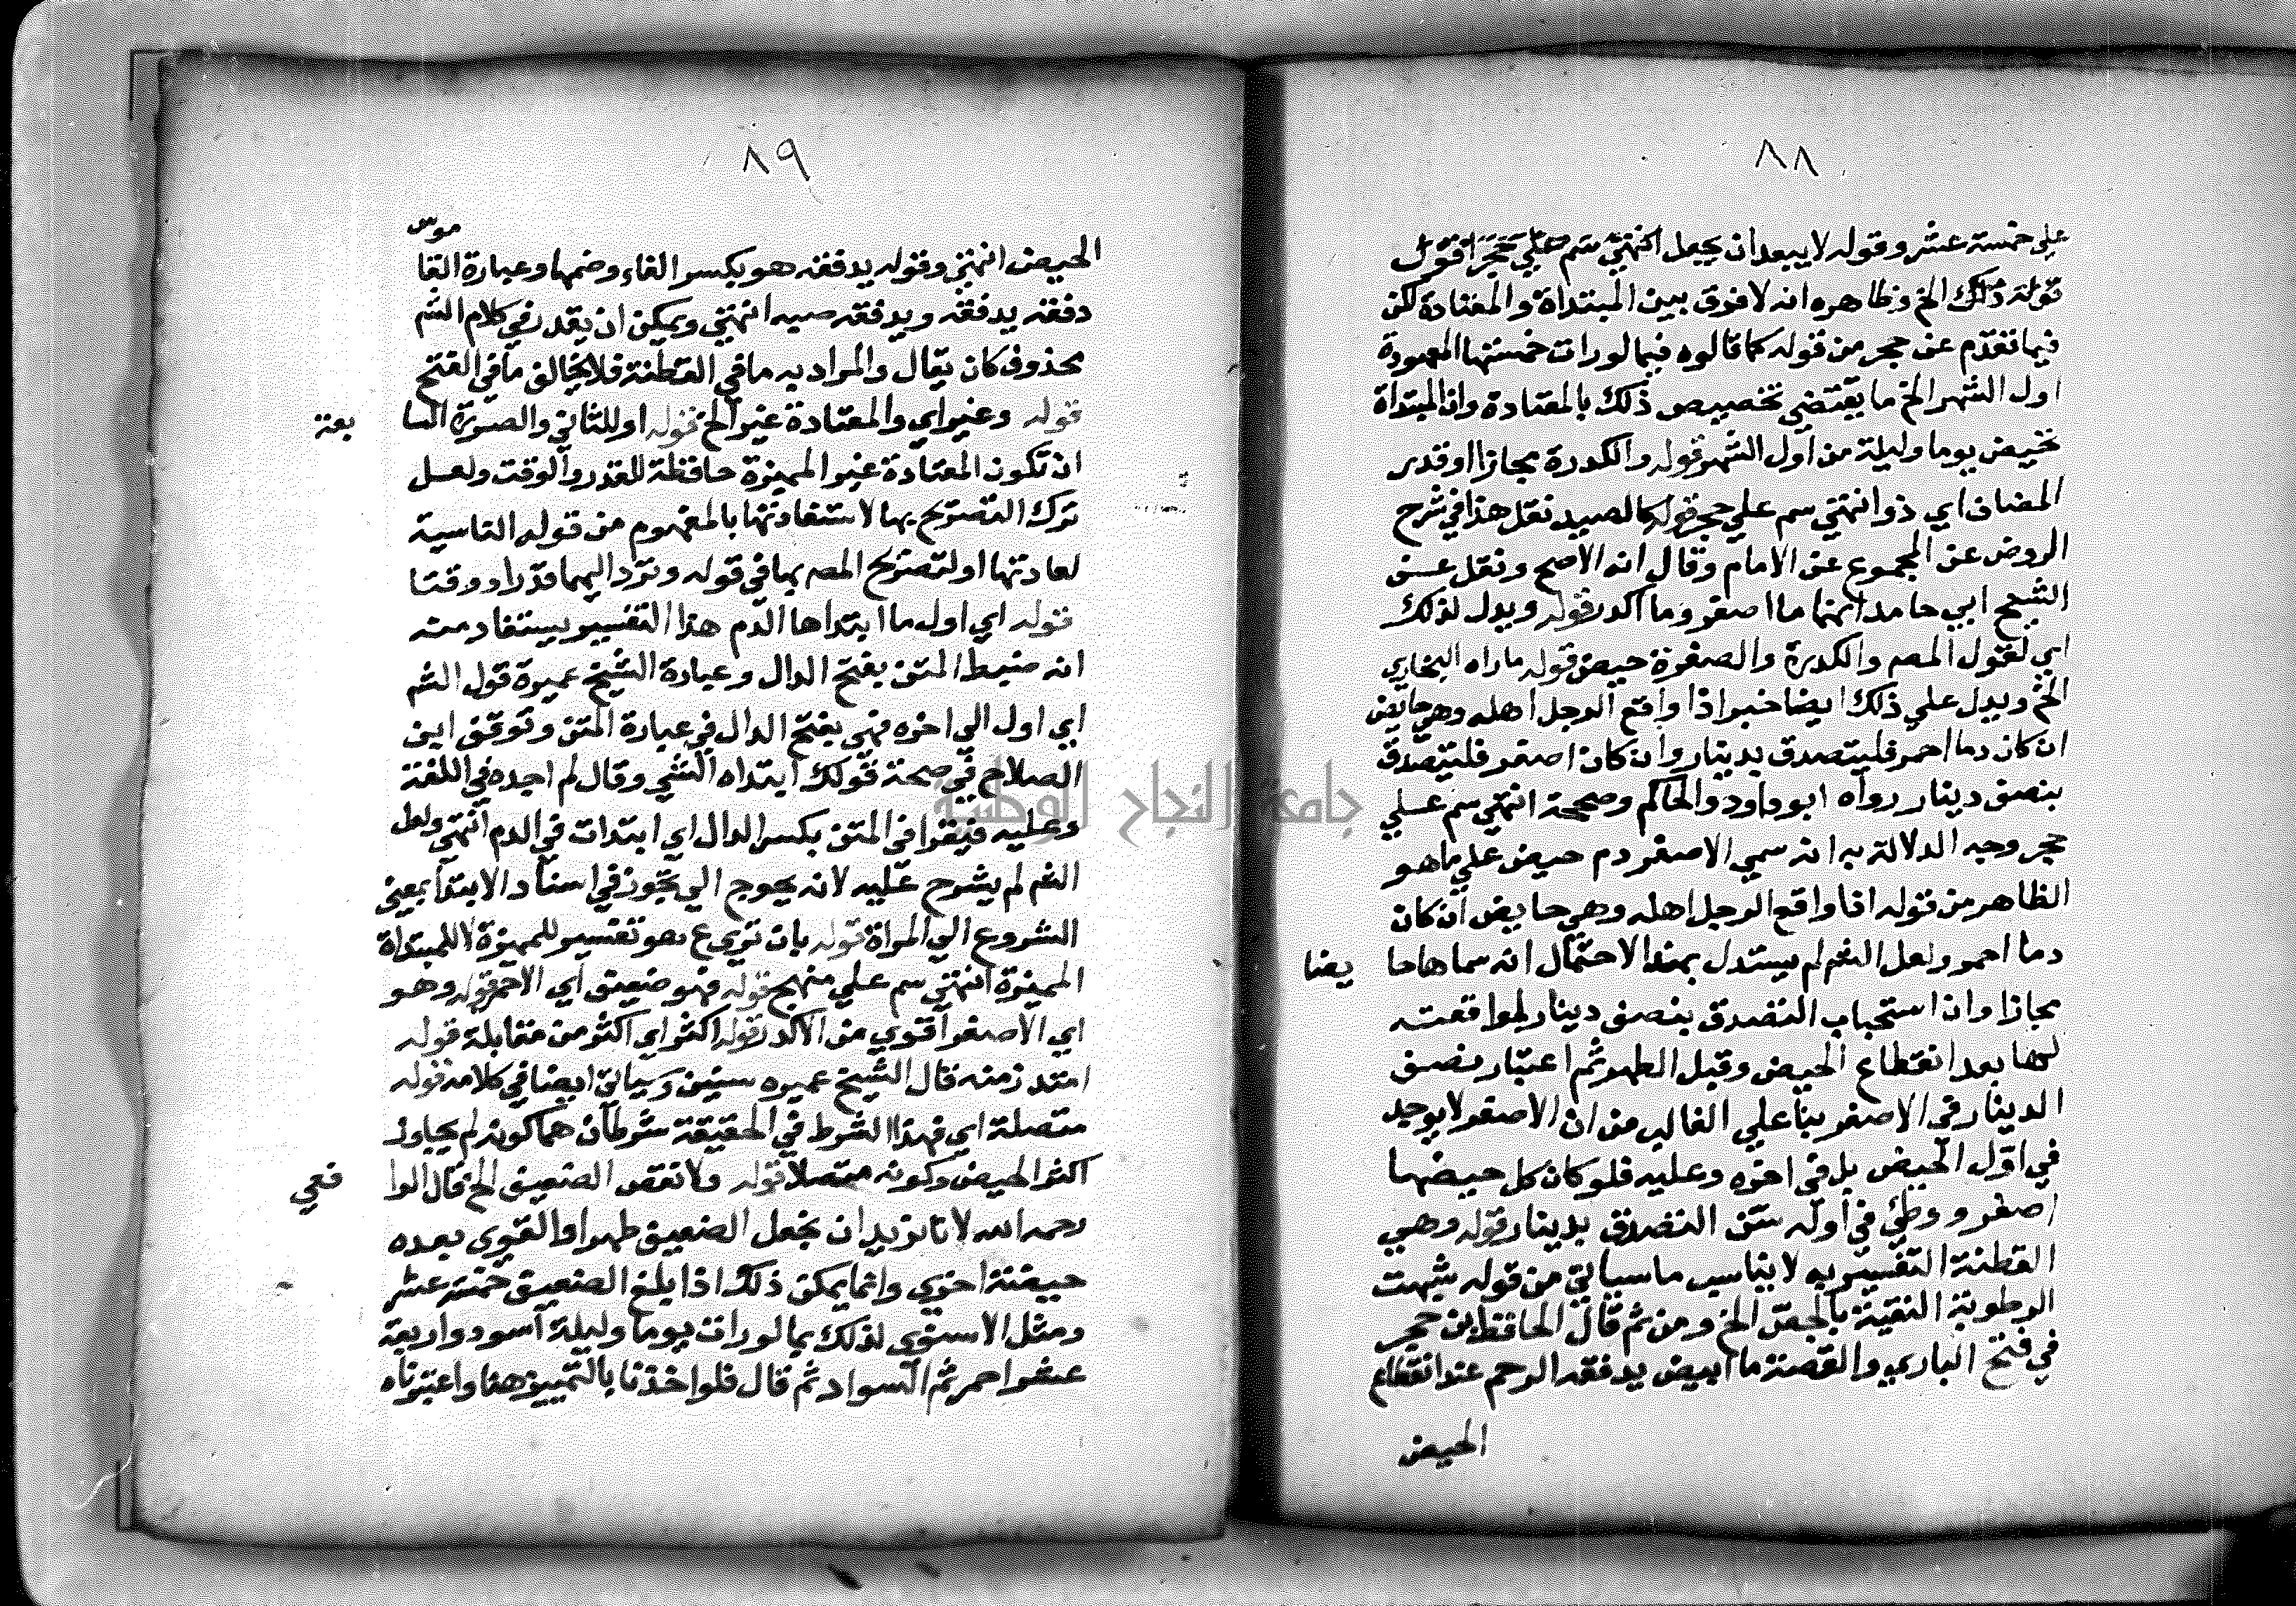 ٨٨
علي خمسة عشر وقوله لا يبعد ان يجعل انتهي سم علي حجر اقول
قوله ذلك الخ وظاهره انه لا فرق بين المبتداة والمعتادة لكن
فيما تقدم عن حجر من قوله كما قالوه فيما لو رات خمستها المعهودة
اول الشهر الخ ما يقتضي تخصيص ذلك بالمعتادة وان المبتداة
تحيض يوما وليلة من اول الشهر قوله والكدرة مجازا او قدر
المضاف اي ذو انتهي سم علي حجر قوله كالصديد نقل هذا في شرح
الروض عن المجموع عن الامام وقال انه الاصح ونقل عن
الشيخ ابي حامد انهما ما اصفر وما اكدر قوله ويدل لذلك
اي لقول المصم والكدرة والصفرة حيض قوله ماراه البخاري
الخ ويدل علي ذلك ايضا خبر اذا واقع الرجل اهله وهي حايض
ان كان دما احمر فليتصدق بدينار وان كان اصفر فليتصدق
بنصف دينار رواه ابو داود والحاكم وصححه انتهي سم علي
حجر وجه الدلالة به انه سمي الاصفر دم حيض علي ما هو
الظاهر من قوله اذا واقع الرجل اهله وهي حايض ان كان
دما احمر ولعل الشم لم يستدل بهذا لاحتمال انه سماها حا يضا
مجازا وان استحباب التصدق بنصف دينار لمواقعته
لها بعد انقطاع الحيض وقبل الطهر ثم اعتبار نصف
الدينار في الاصفر بنا علي الغالب من ان الاصفر لا يوجد
في اول الحيض بل في اخره وعليه فلو كان كل حيضها
اصفر و وطئ في اوله سن التصدق بدينار قوله وهي
القطنة التفسير به لا يناسب ما سياتي من قوله شبهت
الرطوبة النقية بالجص الخ ومن ثم قال الحافظ ابن حجر
في فتح الباري والقصة ما ابيض يدفعه الرحم عند انقطاع
الحيض
٨٩
الحيض انتهي وقوله يدفقه هو بكسر الفاء وضمها وعبارة القا موس
دفقه يدفقه ويدفقه صبه انتهي ويمكن ان يقدر في كلام الشم
محذوف كان يقال والمراد به ما في القطنة فلا يخالف ما في الفتح
قوله وغير اي والمعتادة غير الخ قوله او للثاني والصورة السا بعة
ان تكون المعتادة غير المميزة حافظة للقدر والوقت ولعل
ترك التصريح بها لاستفادتها بالمفهوم من قوله الناسية
لعادتها او لتصريح المصم بها في قوله وترد اليهما قدرا ووقتا
قوله اي اول ما ابتداها الدم هذا التفسير يستفاد منه
انه ضبط المتن بفتح الدال وعبارة الشيخ عميرة قول الشم
اي اول الي اخره فهي بفتح الدال في عبارة المتن وتوقف ابن
الصلاح في صحة قولك ابتداه الشي وقال لم اجده في اللغة
وعليه فيقرا في المتن بكسر الدال اي ابتدات في الدم انتهي ولعل
الشم لم يشرح عليه لانه يحوج الي تجوز في اسناد الابتدا بمعني
الشروع الي المراة قوله بان تري ع هو تفسير للمميزة لا للمبتداة
المميزة انتهي سم علي منهج قوله فهو ضعيف اي الاحمر قوله وهو
اي الاصفر اقوي من الاكدر قوله اكثر اي اكثر من مقابله قوله
امتد زمنه قال الشيخ عميره سنين وسياتي ايضا في كلامه قوله
متصلة اي فهذا الشرط في الحقيقة شرطان هما كونه لم يجاوز
اكثر الحيض وكونه متصلا قوله ولا نقص الضعيف الخ قال الرا فعي
رحمه الله لانا نريد ان نجعل الضعيف طهرا والقوي بعده
حيضة اخري وانما يمكن ذلك اذا بلغ الضعيف خمسة عشر
ومثل الاسنوي لذلك بما لو رات يوما وليلة اسود واربعة
عشر احمر ثم السواد ثم قال فلو اخذنا بالتمييز هنا واعتبرناه